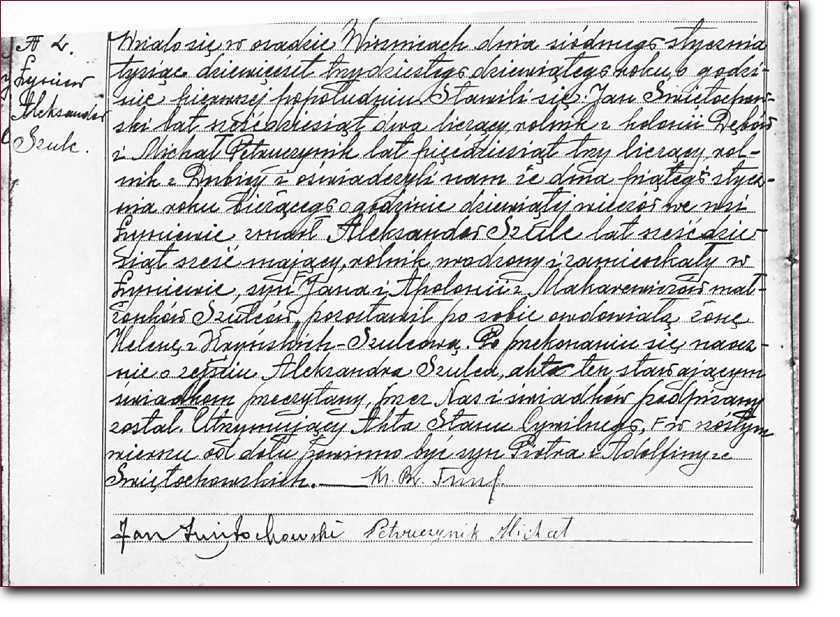 № 2.
Łyniew
Aleksander
Szulc.
Działo się w osadzie Wisznicach dnia siódmego stycznia
tysiąc dziewięćset trzydziestego dziewiątego roku, o godzi-
nie pierwszej popołudniu. Stawili się: Jan Świętochow-
ski lat sześćdziesiąt dwa liczący rolnik z kolonii Dębów
i Michał Petruczynik lat pięćdziesiąt trzy liczący, rol-
nik z Dubicy i oświadczyli nam że dnia piątego stycz-
nia roku bieżącego o godzinie dziewiątej wieczór we wsi
Łyniewie zmarł Aleksander Szulc lat sześćdzie-
siąt sześć mający, rolnik urodzony i zamieszkały w
Łyniewie, syn Jana i Apolonii z Makarewiczów mał-
żonków Szulców, pozostawił po sobie owdowiałą żonę
Helenę z Szulcową. Po przekonaniu się naocz-
nie o zejściu Aleksandra Szulca, akta ten stawającym
świadkom przeczytany, przez Nas i świadków podpisany
został. Utrzymujący Akta Stanu Cywilnego, w szóstym
wierszu od dołu powinno być syn Piotra i Adolfiny ze
Świętochowskich. Ks. Br.
Jan Świętochowski Petruczynik Michał